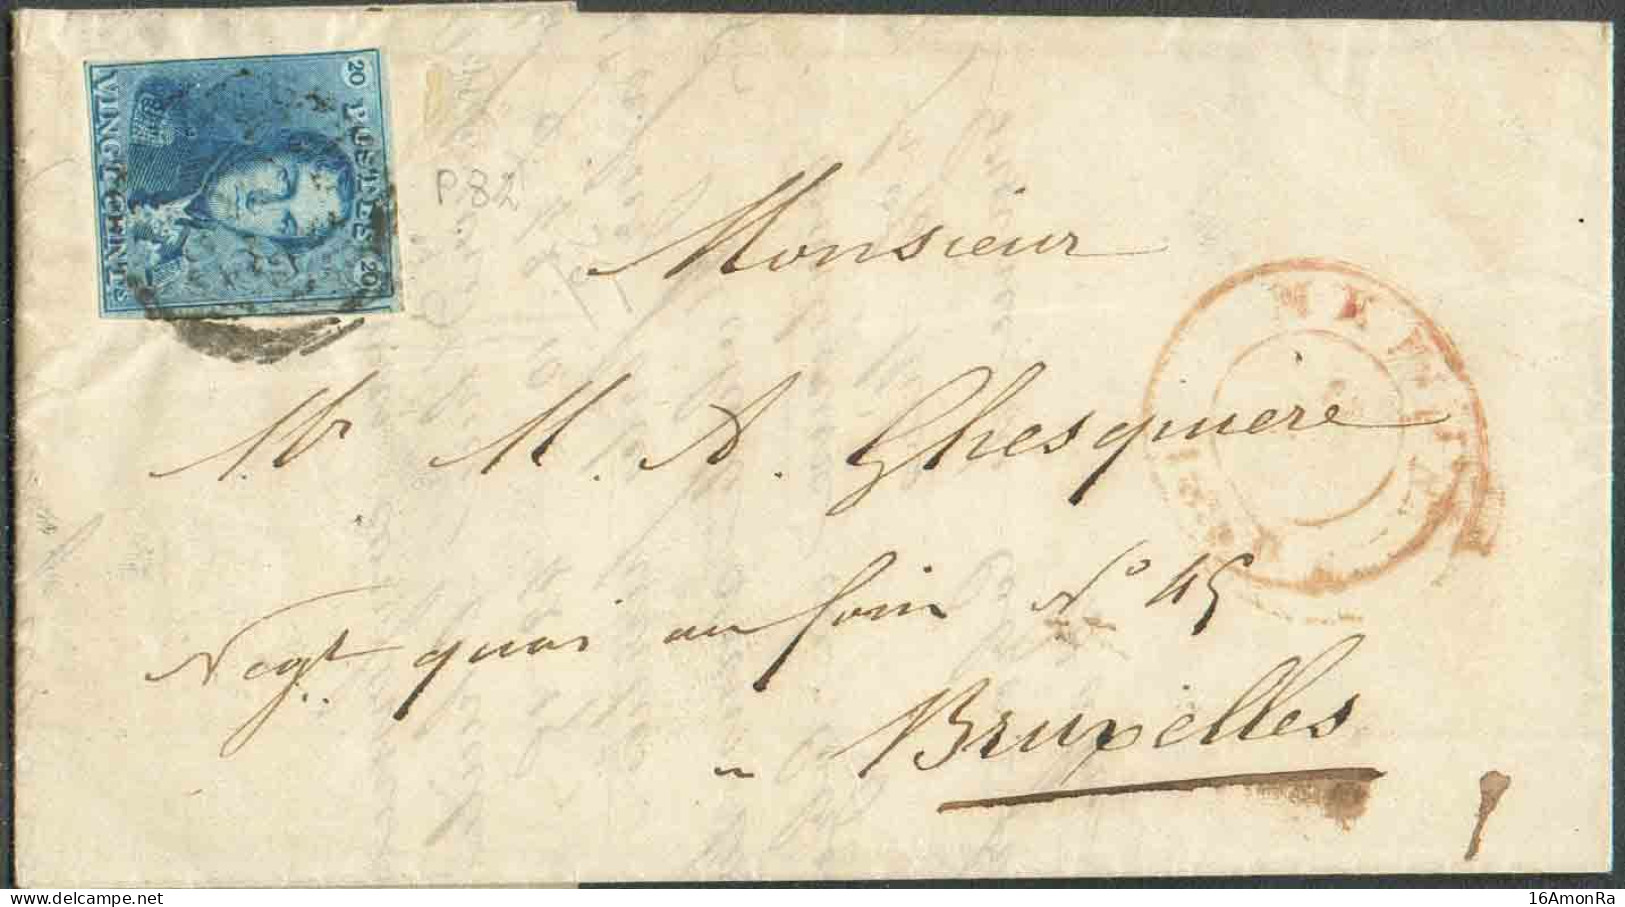 20 POSTES 20
VINGT CENTS
P 82
Monsieur
Mr M. A. Ghesquiere
MENIN
Negt. quai au foin No 45
Bruxelles
16AmonRa